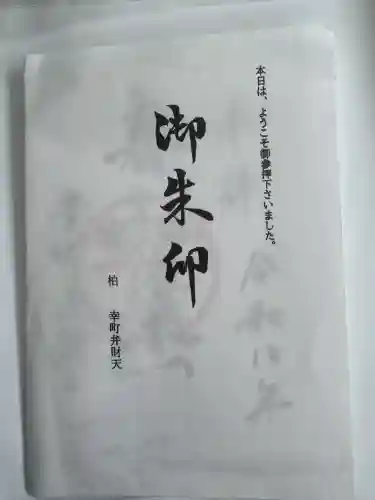 本日は、ようこそ御参拝下さいました。
御朱印
柏 幸町弁財天